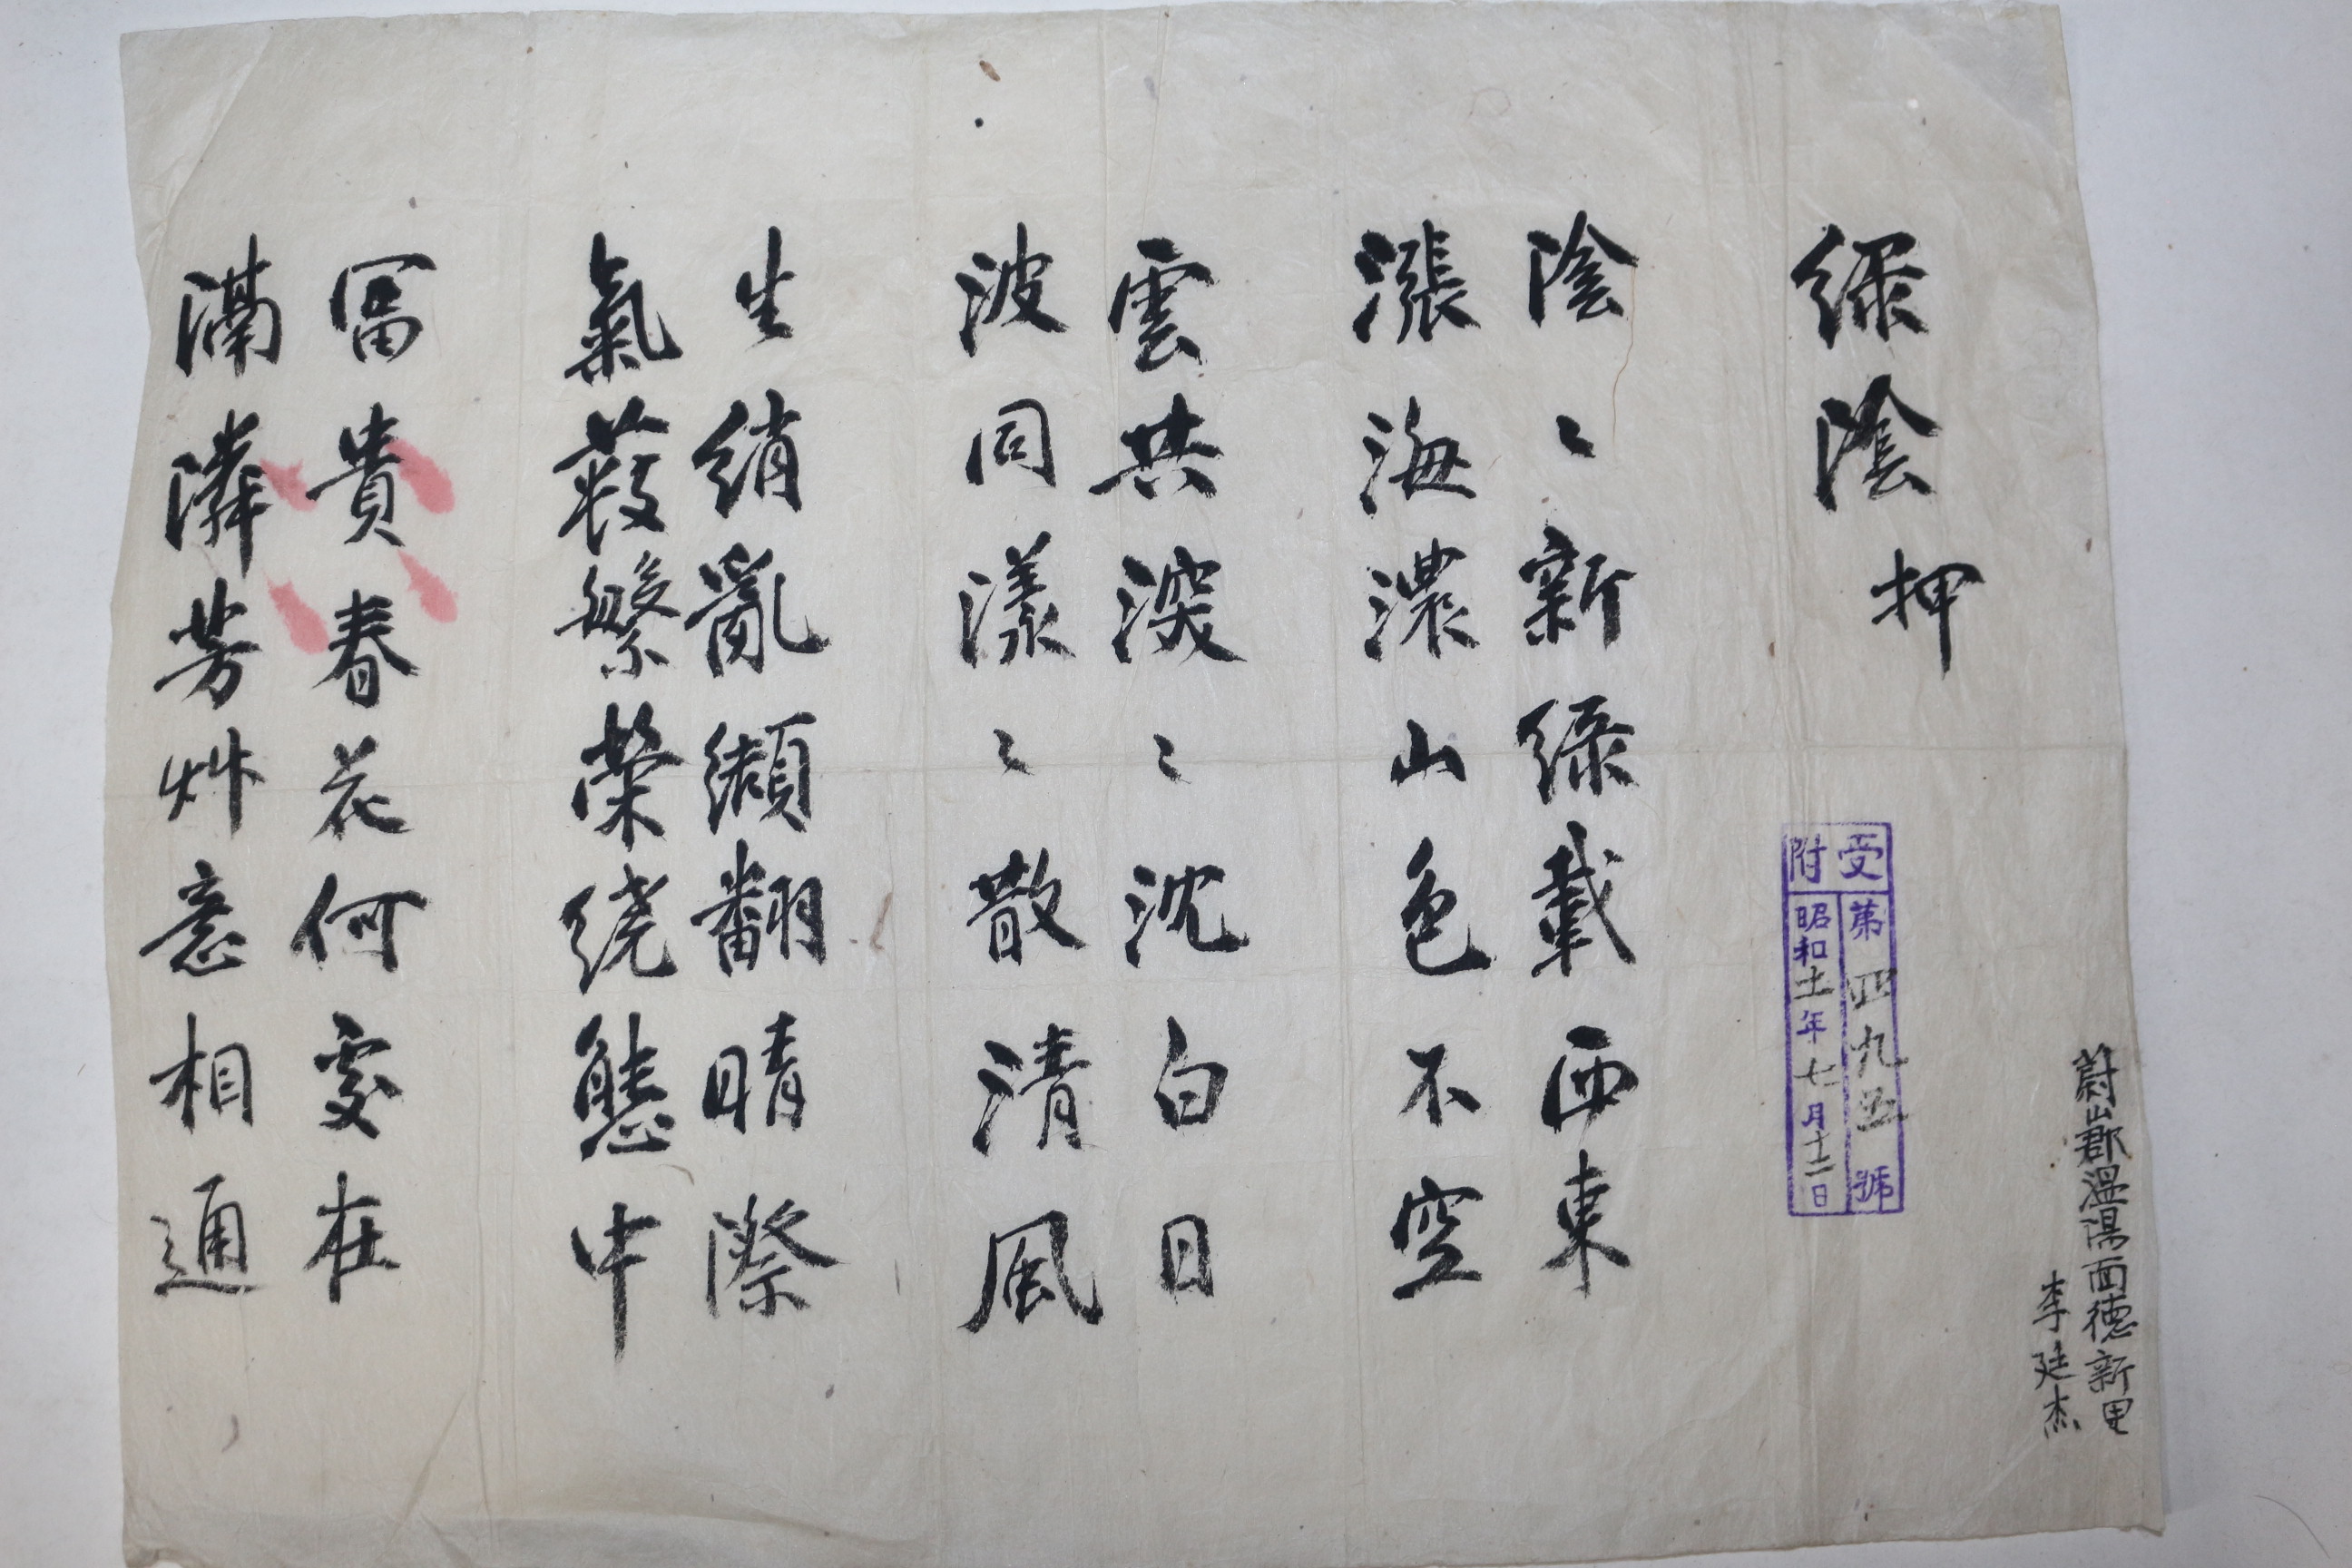 蔚山郡溫陽面德新里
李廷杰
受附
第四九五號
昭和十一年七月十二日
綠陰 押
陰〻新綠載西東
漲海濃山色不空
雲共深〻沈白日
波同漾〻散清風
生綃亂纈翻晴際
氣蔱繁榮繞態中
富貴春花何處在
滿隣芳艸意相通